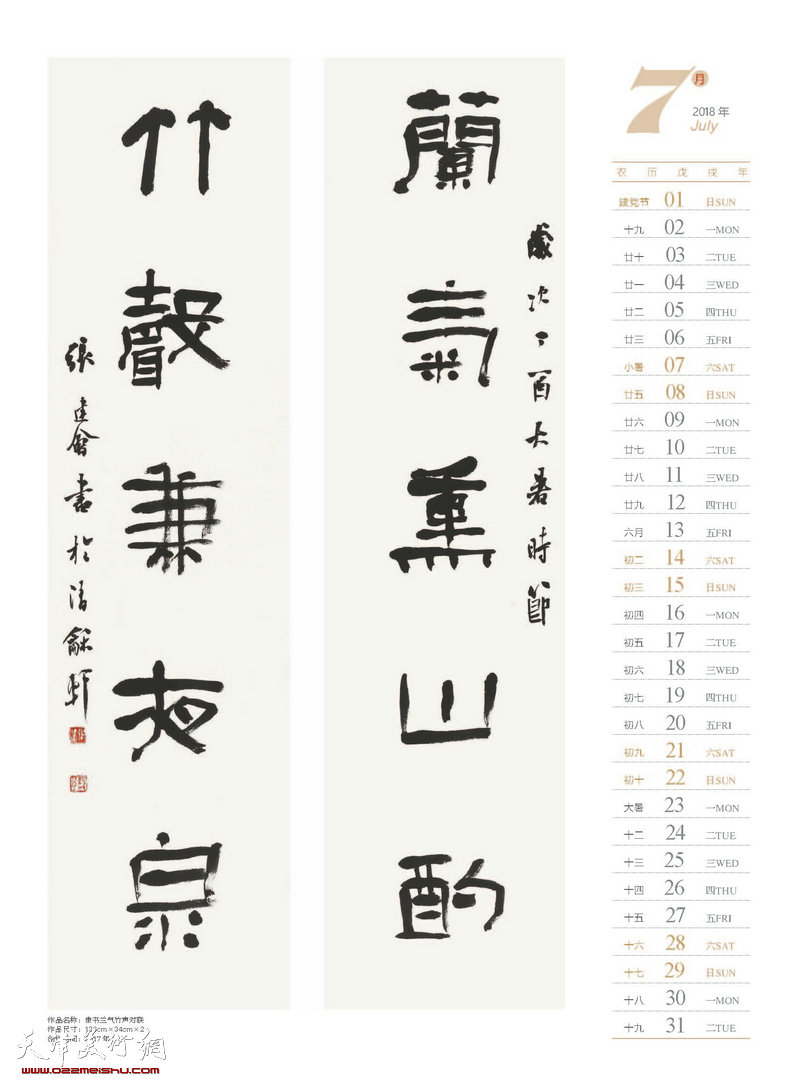 蘭氣熏山酌
歲次丁酉大暑時節
竹聲兼夜泉
張建會書於清龢軒
7月
2018 年
July
农历戊戌年
建党节 01 日SUN
十九 02 一MON
廿十 03 二TUE
廿一 04 三WED
廿二 05 四THU
廿三 06 五FRI
小暑 07 六SAT
廿五 08 日SUN
廿六 09 一MON
廿七 10 二TUE
廿八 11 三WED
廿九 12 四THU
六月 13 五FRI
初二 14 六SAT
初三 15 日SUN
初四 16 一MON
初五 17 二TUE
初六 18 三WED
初七 19 四THU
初八 20 五FRI
初九 21 六SAT
初十 22 日SUN
大暑 23 一MON
十二 24 二TUE
十三 25 三WED
十四 26 四THU
十五 27 五FRI
十六 28 六SAT
十七 29 日SUN
十八 30 一MON
十九 31 二TUE
作品名称：隶书兰气竹声对联
作品尺寸：131cm×34cm×2
天津美術網
www.022meishu.com